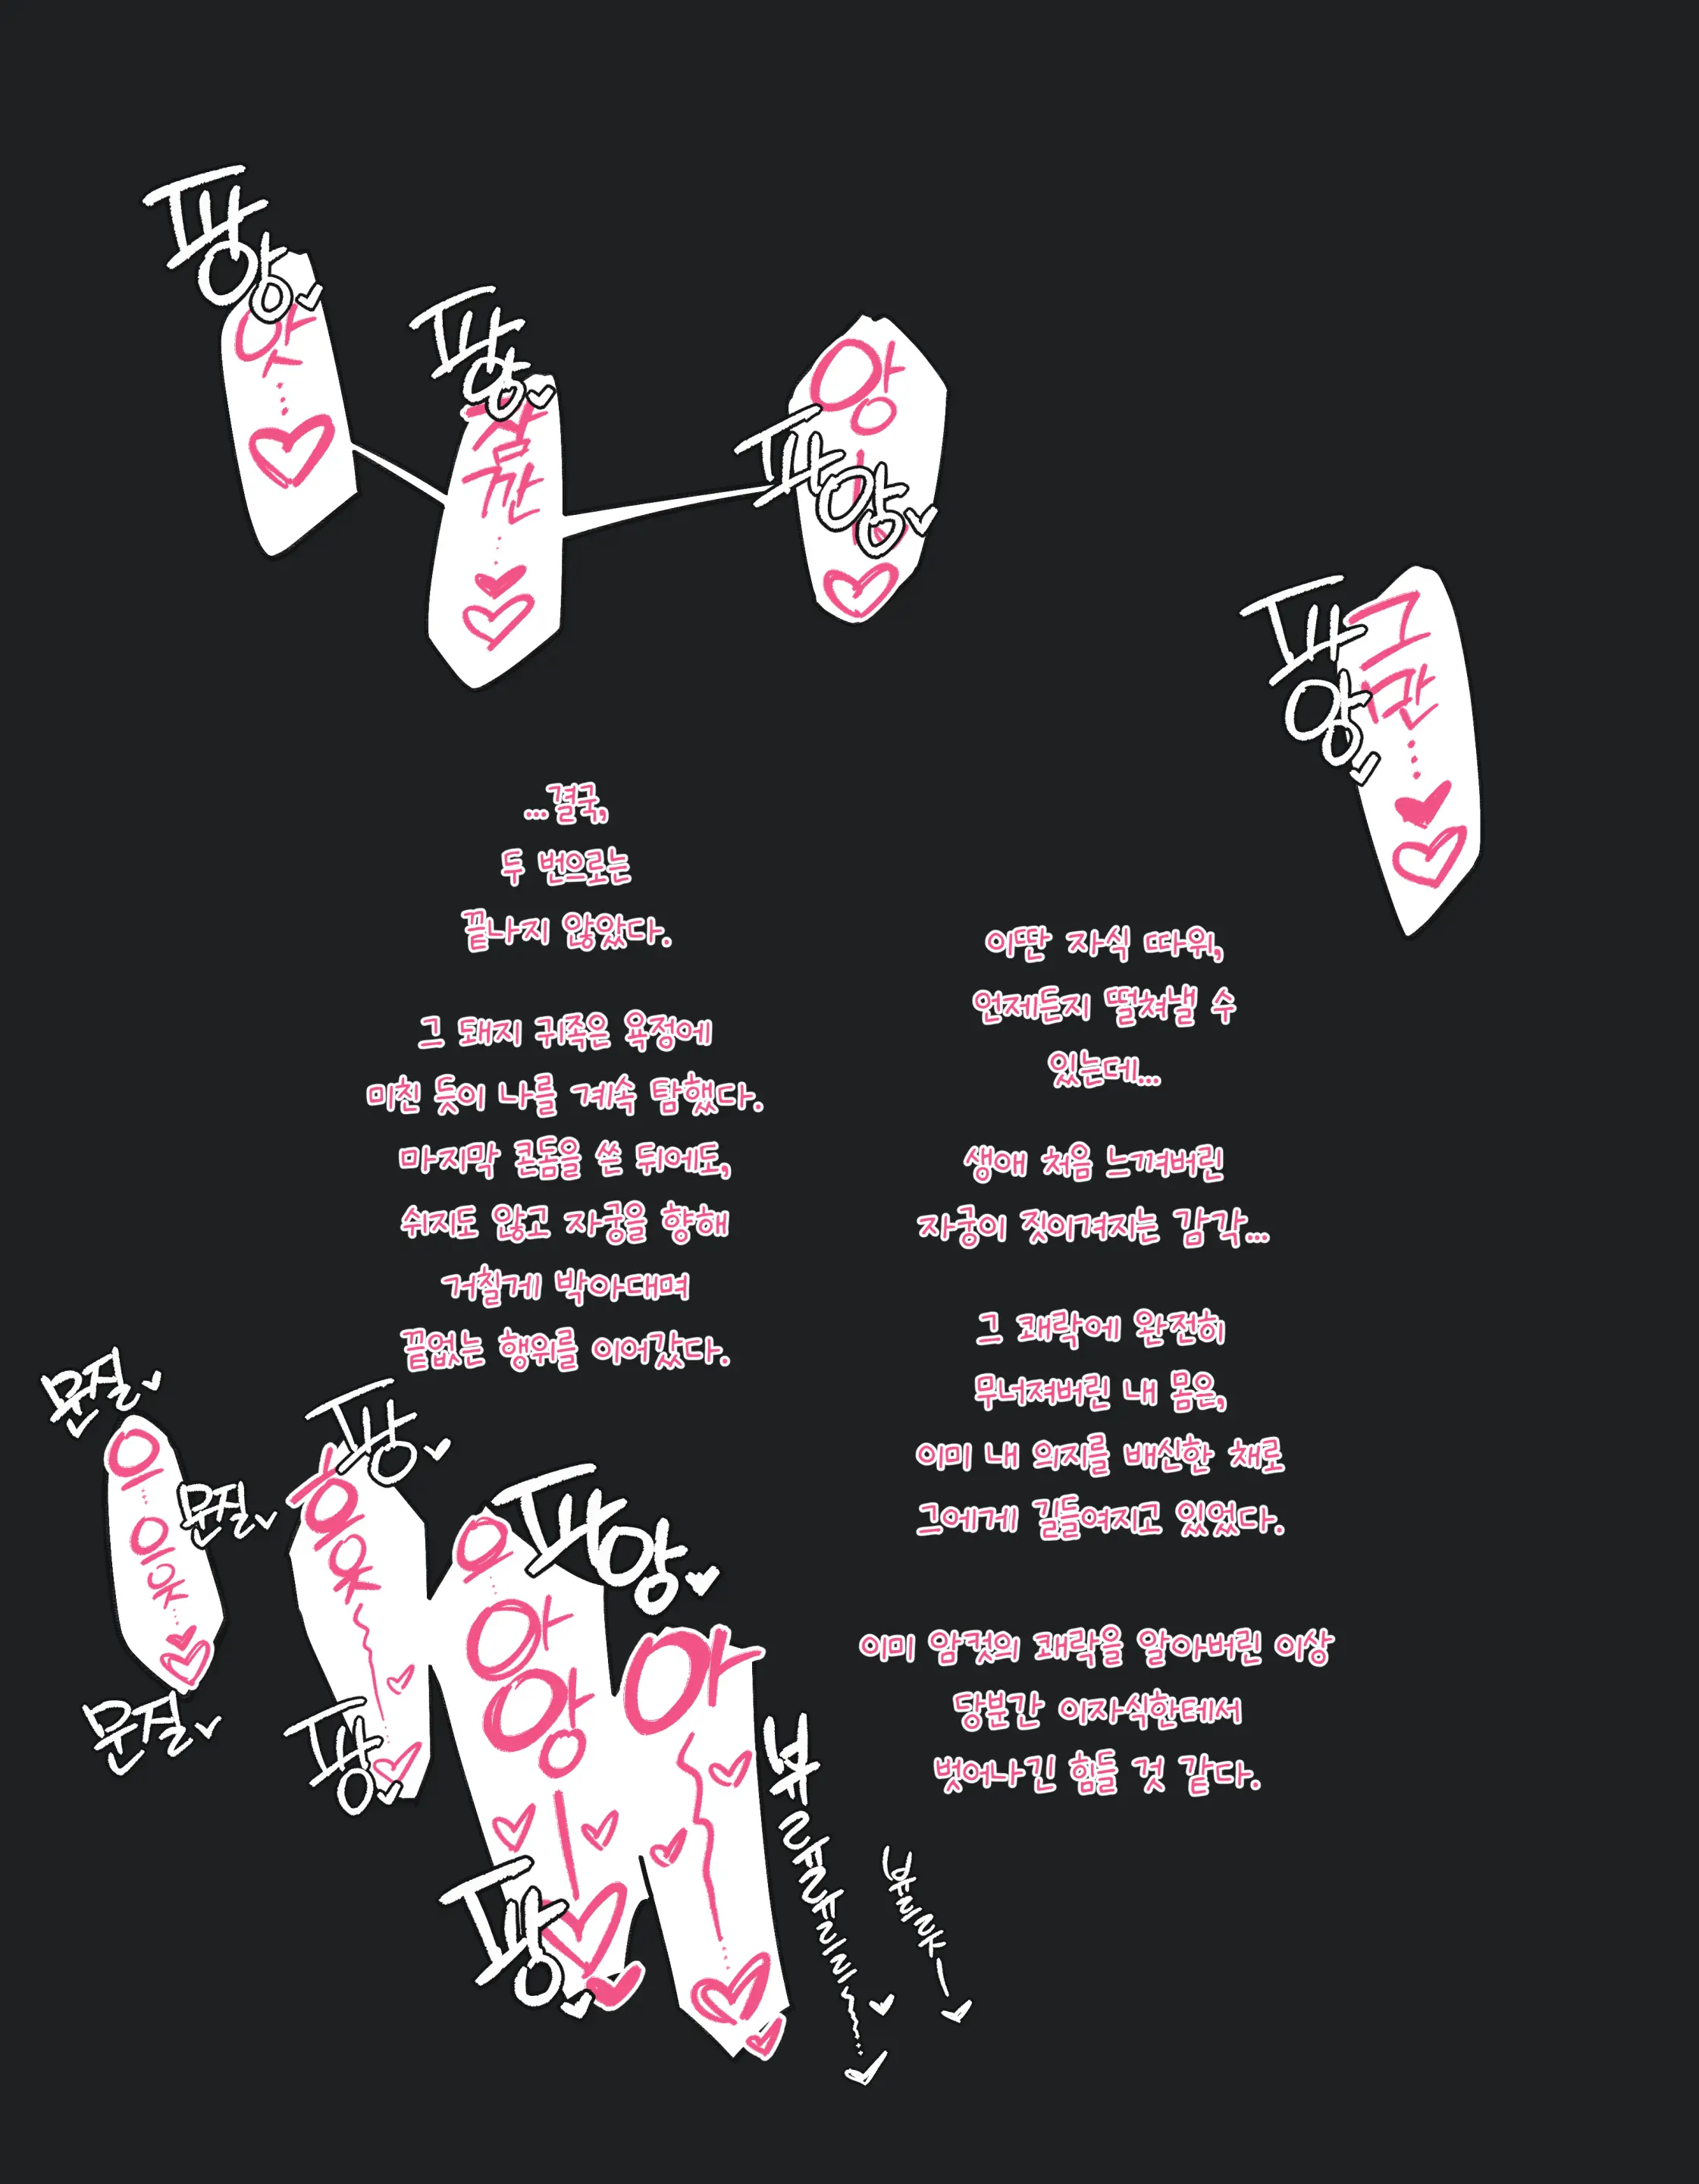 파앙♥
앗...♥
파앙♥
잠깐...♥♥
앙
파앙♥
♥
파앙♥
그만...♥♥
...결국,
두 번으로는
끝나지 않았다.
그 돼지 귀족은 욕정에
미친 듯이 나를 계속 탐했다.
마지막 콘돔을 쓴 뒤에도,
쉬지도 않고 자궁을 향해
거칠게 박아대며
끝없는 행위를 이어갔다.
이딴 자식 따위,
언제든지 떨쳐낼 수
있는데...
생애 처음 느껴버린
자궁이 짓이겨지는 감각...
그 쾌락에 완전히
무너져버린 내 몸은,
이미 내 의지를 배신한 채로
그에게 길들여지고 있었다.
이미 암컷의 쾌락을 알아버린 이상
당분간 이자식한테서
벗어나긴 힘들 것 같다.
문질♥
으...으읏...♥♥
문질♥
문질♥
팡♥
흐읏...♥
팡♥
으...
아앙ㅣ♥♥♥♥
파앙♥
팡♥
아...♥♥♥♥